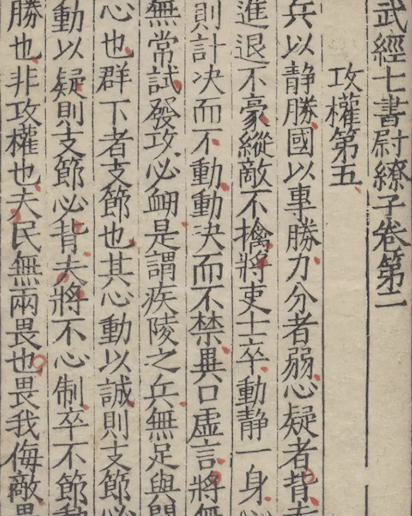 武經七書尉繚子卷第二
攻權第五
兵以静勝國以專勝力分者弱心疑者背夫
進退不豪縱敵不擒將吏士卒動静一身心
則計决而不動動决而不禁異口虛言將無
無常試發攻必衄是謂疾陵之兵無足與鬭
心也群下者支節也其心動以誠則支節必
動以疑則支節必背夫將不心制卒不節動
勝也非攻權也夫民無兩畏也畏我侮敵畏